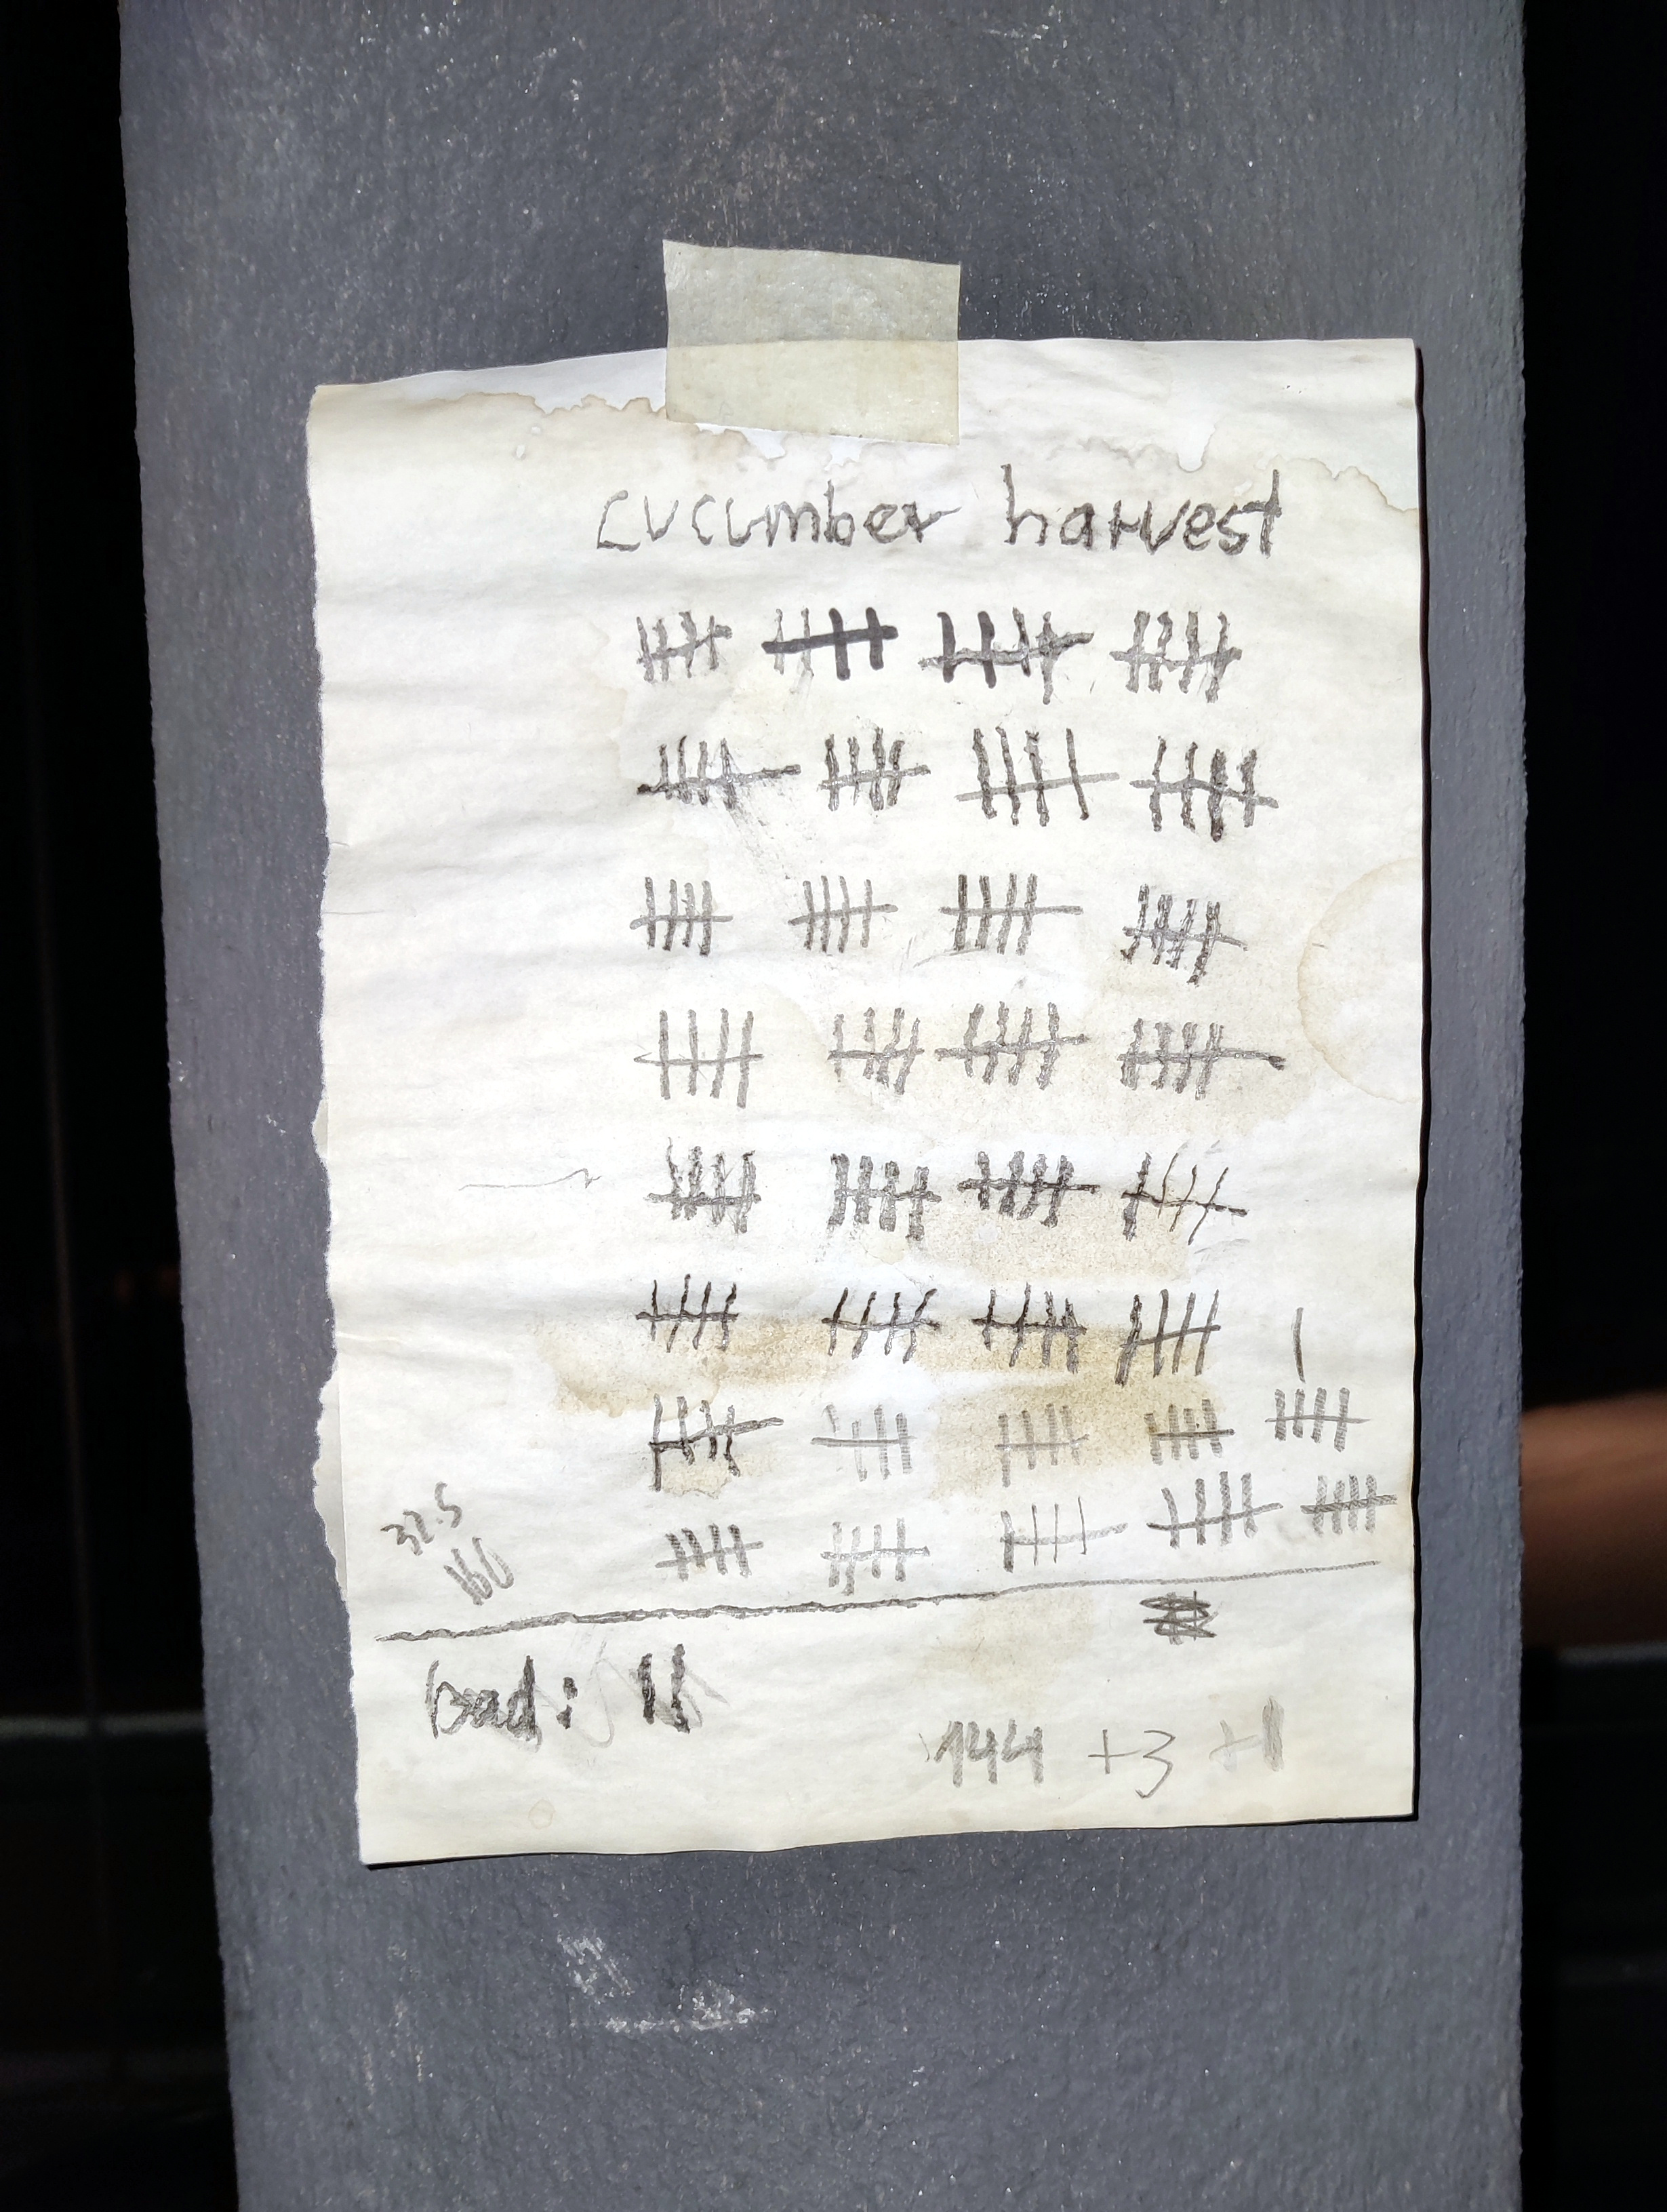 cucumber harvest
32.5
160
bad: II
144 +3 +1